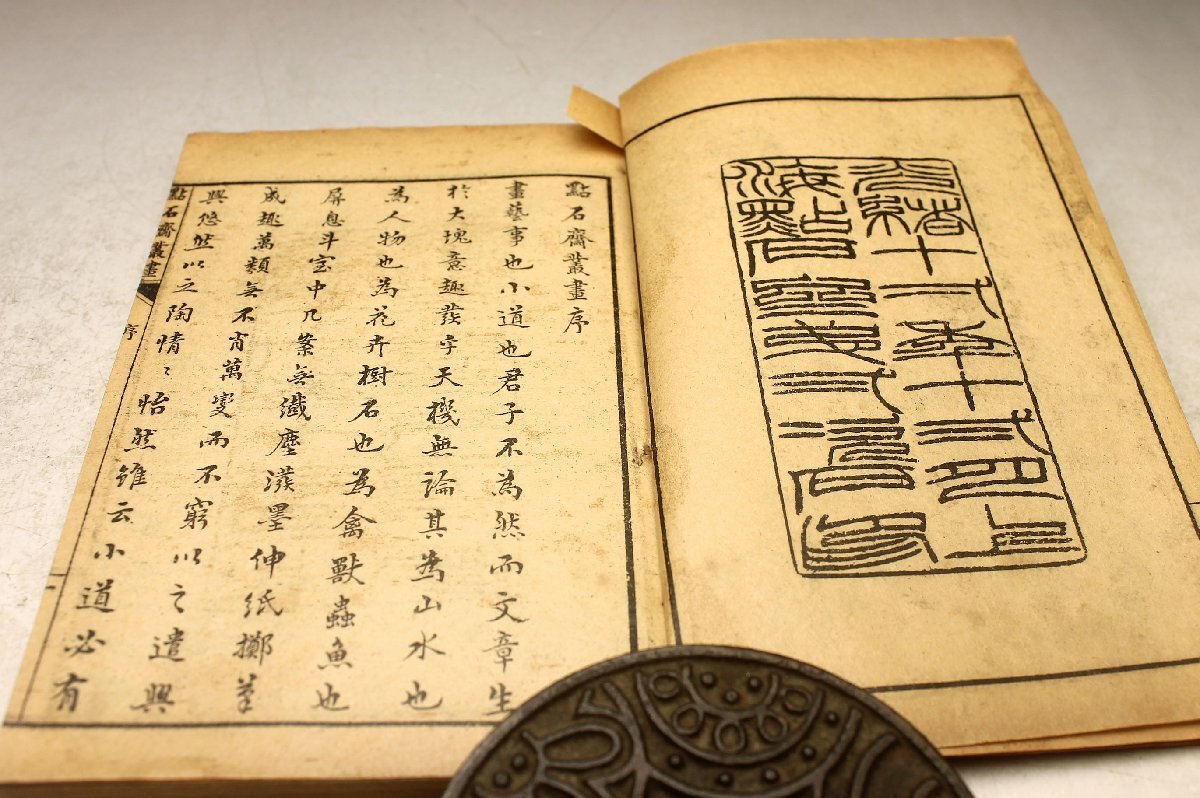 光緒十弌年十弍月上
海點石齋
點石齋叢畫序
畫藝事也小道也君子不為然而文章生
於大塊意趣發乎天機無論其為山水也
為人物也為花卉樹石也為禽獸蟲魚也
屏息斗室中几案無纖塵潑墨伸紙擲筆
成趣萬類無不肖萬變而不窮以之遣興
興悠然以之陶情〻怡然雖云小道必有
點石齋叢畫 序 一